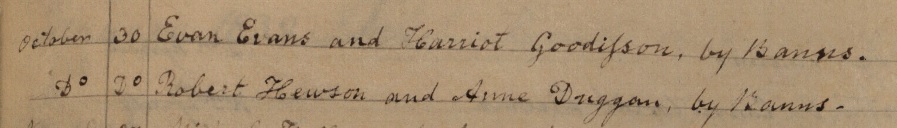 October 30 Evan Evans and Harriot Goodiſson, by Banns.
Do Do Robert Hewson and Anne Duggan, by Banns.